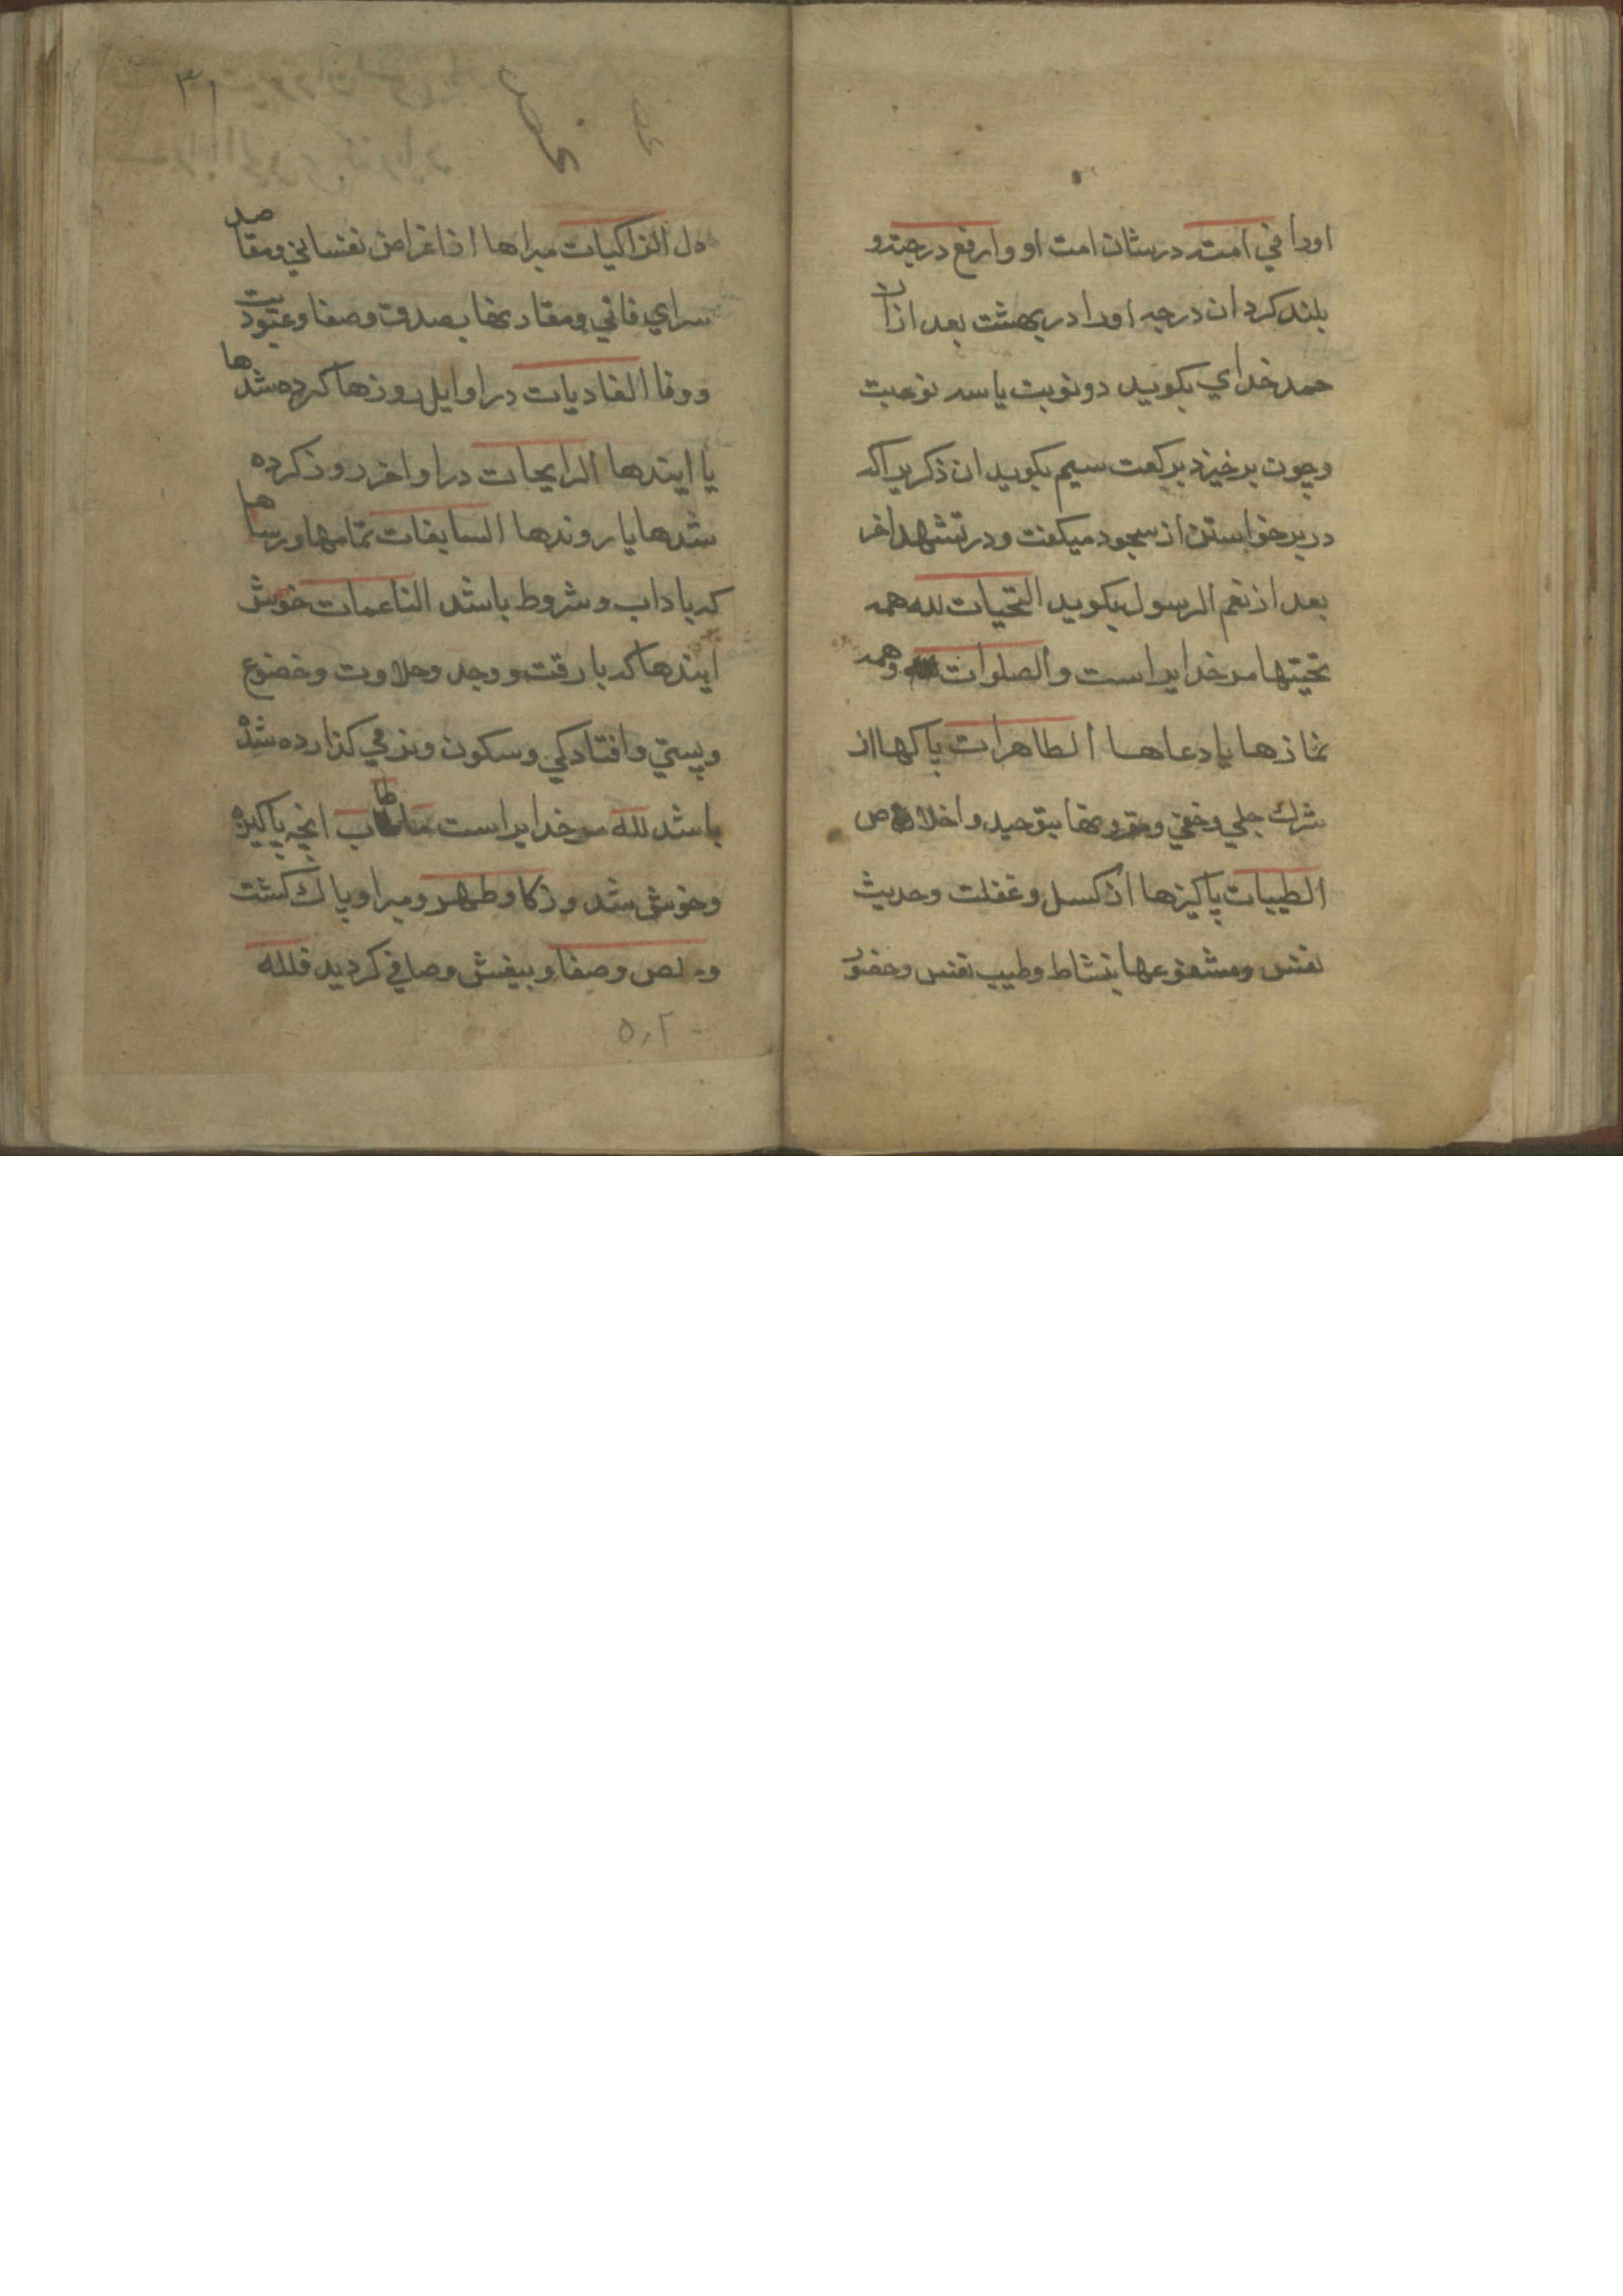 اورا في امته درشان امت او وارفع درجته و
بلند كردان درجه اورا در بهشت بعد ازان
حمد خداي بكويد دو نوبت يا سه نوبت
وچون برخيزد بركعت سيم بكويد ان ذكريرا كه
در برخواستن از سجود ميكفت و در تشهد اخر
بعد از نعم الرسول بكويد التحيات لله همه
تحيتها مر خدايراست والصلوات وهمه
نمازها يا دعاها الطاهرات پاكها از
شرك جلي وخفي ومقرونها بتوحيد واخلاص
الطيبات پاكيزها از كسل وغفلت وحديث
نفس ومشفوعها بنشاط وطيب نفس وحضور
دل الزاكيات مبراها از اغراض نفساني ومقاصد
سراي فاني ومقارنها بصدق وصفا وعبوديت
ووفا الغاديات در اوايل روزها كرده شدها
يا ايندها الرايحات در اواخر روز كرده
شدها يا روندها السابغات تمامها ورساها
كه باداب وشروط باشد الناعمات خوش
ايندها كه با رقت ووجد وحلاوت وخضوع
وپستي وافتادكي وسكون ونرمي كذارده شده
باشد لله مر خدايراست ما طاب انچه پاكيزه
وخوش شد وزكا وطهر ومبرا وپاك كشت
وخلص وصفا وبيغش وصافي كرديد فلله
٣١
٥٠٢